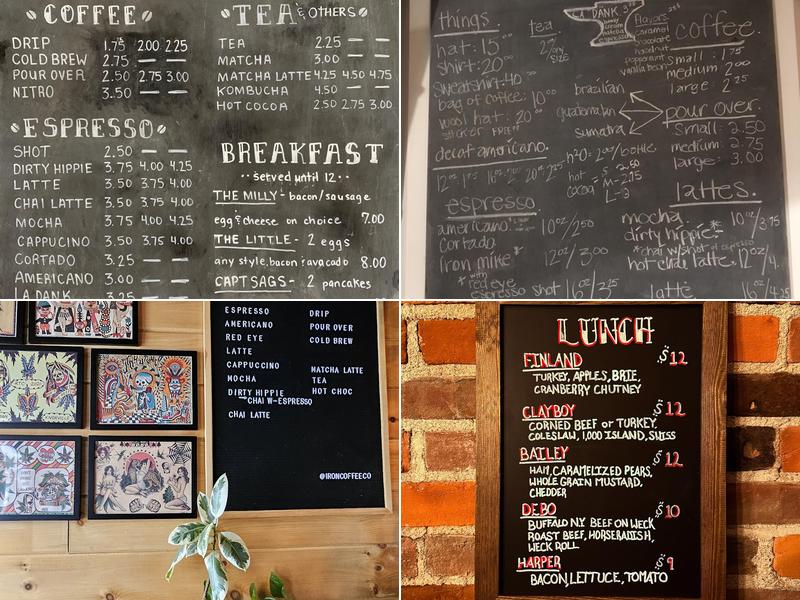 COFFEE
DRIP 1.75 2.00 2.25
COLD BREW 2.75 — —
POUR OVER 2.50 2.75 3.00
NITRO 3.50 — —
ESPRESSO
SHOT 2.50 — —
DIRTY HIPPIE 3.75 4.00 4.25
LATTE 3.50 3.75 4.00
CHAI LATTE 3.50 3.75 4.00
MOCHA 3.75 4.00 4.25
CAPPUCINO 3.50 3.75 4.00
CORTADO 3.25 — —
AMERICANO 3.00 — —
LA DANK 3.25 — —
TEA & OTHERS
TEA 2.25 — —
MATCHA 3.00 — —
MATCHA LATTE 4.25 4.50 4.75
KOMBUCHA 4.50 — —
HOT COCOA 2.50 2.75 3.00
BREAKFAST
served until 12
THE MILLY - bacon/sausage
egg & cheese on choice 7.00
THE LITTLE - 2 eggs
any style, bacon & avacado 8.00
CAPT SAGS - 2 pancakes
things.
hat: 15
shirt: 20
sweatshirt: 40
bag of coffee: 10
wool hat: 20
sticker FREE
decaf americano.
espresso
americano
cortado
10oz/2.50
iron mike *
12oz/3.00
* with
red eye
espresso shot 16/3.25
tea.
2 /any
SIZE
LA DANK 3
Flavors
caramel
chocolate
hazelnut
peppermint
vanilla bean
brazilian
guatemalan
sumatra
h2o: 2 /bottle
hot cocoa S-2.50
M-2.75
L-3
coffee.
small: 1.75
medium: 2.00
large: 2.25
pour over.
small: 2.50
medium: 2.75
large: 3.00
lattes.
mocha 10oz/3.75
dirty hippie. *
* chai w/shot of espresso
hot chai latte 12oz/4.
latte 16/4.25
ESPRESSO
AMERICANO
RED EYE
LATTE
CAPPUCCINO
MOCHA
DIRTY HIPPIE
CHAI W-ESPRESSO
CHAI LATTE
DRIP
POUR OVER
COLD BREW
MATCHA LATTE
TEA
HOT CHOC
@IRONCOFFEECO
LUNCH
FINLAND $12
TURKEY, APPLES, BRIE,
CRANBERRY CHUTNEY
CLAYBOY $12
CORNED BEEF or TURKEY,
COLESLAW, 1,000 ISLAND, SWISS
BAILEY $12
HAM, CARAMELIZED PEARS,
WHOLE GRAIN MUSTARD,
CHEDDER
DEBO $10
BUFFALO N.Y. BEEF ON WECK
ROAST BEEF, HORSERADISH,
WECK ROLL
HARPER $9
BACON, LETTUCE, TOMATO